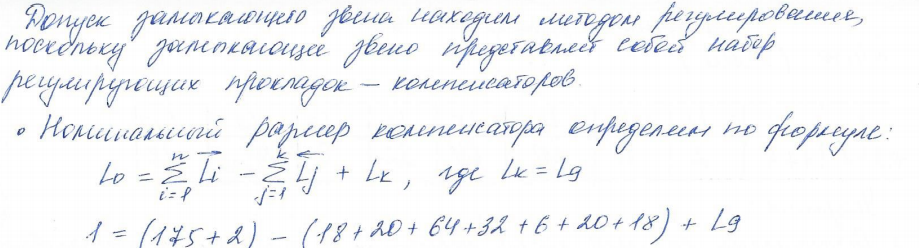 Допуск замыкающего звена находим методом регулирования,
поскольку замыкающее звено представляет собой набор
регулирующих прокладок – компенсаторов.
• Номинальный размер компенсатора определяем по формуле:
L₀ = Σⁿᵢ₌₁ L⃗i − Σᵏⱼ₌₁ L⃖j + Lк, где Lк = L9
1 = (175+2) − (18+20+64+32+6+20+18) + L9